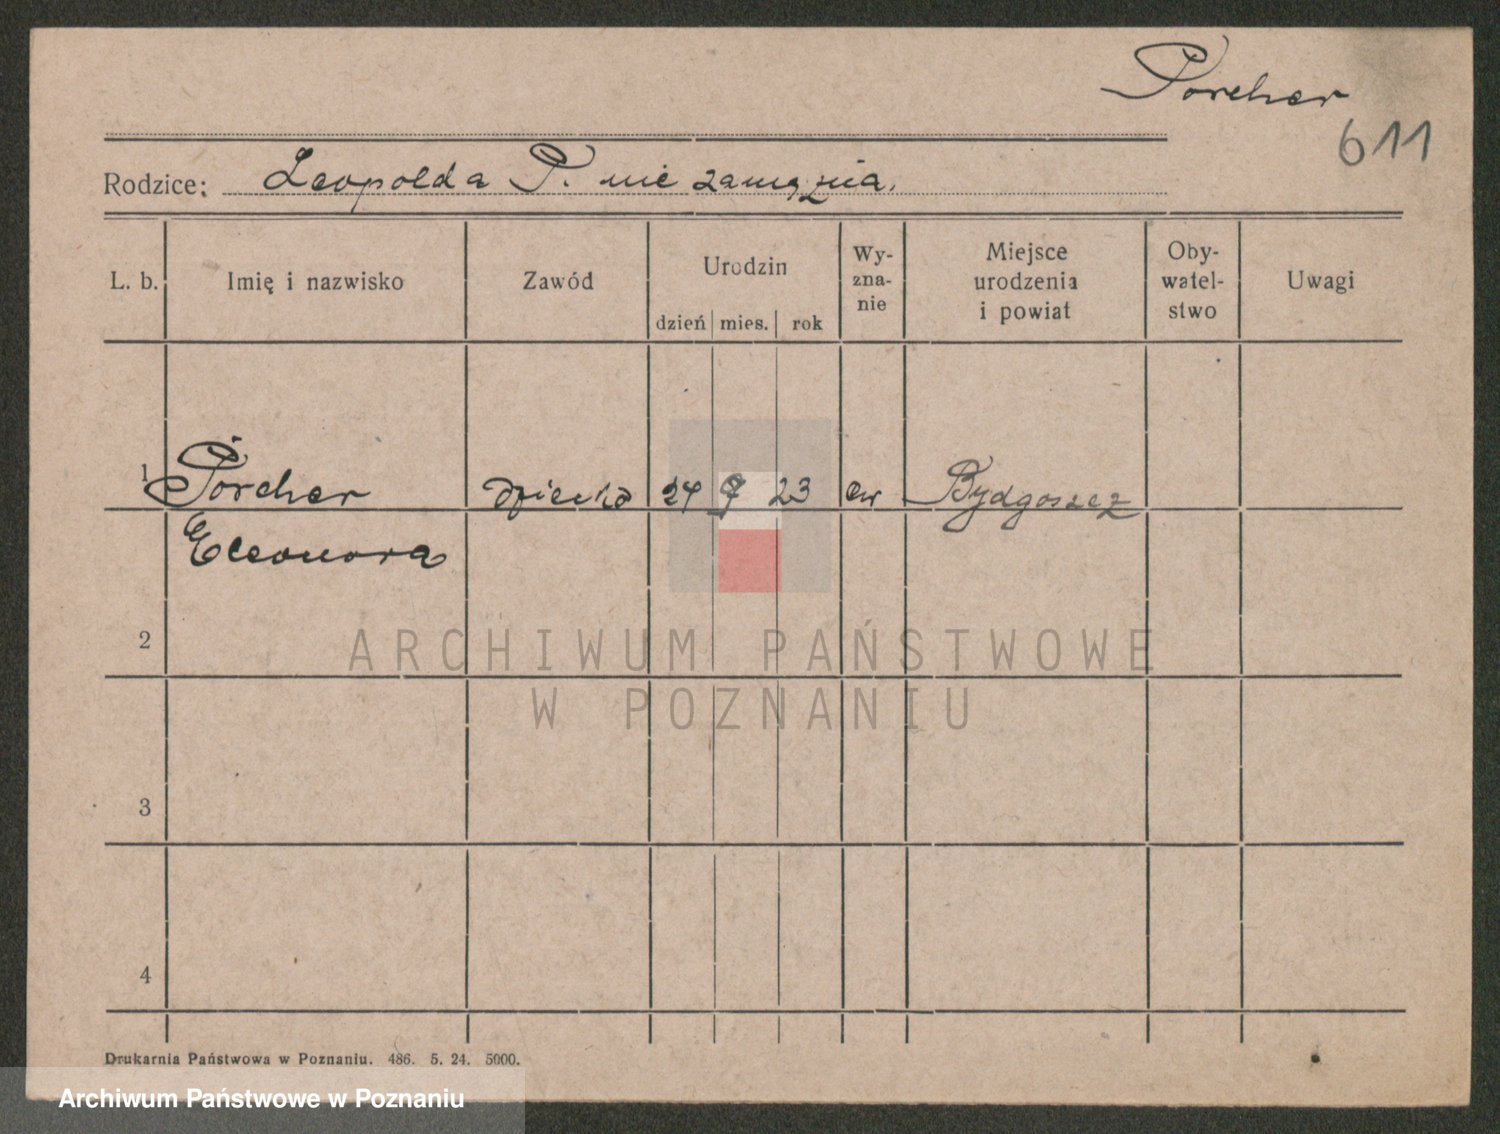 Porcher
611
Rodzice: Leopolda P. nie zamężna.
L. b. Imię i nazwisko Zawód Urodzin dzień mies. rok Wy-zna-nie Miejsce urodzenia i powiat Oby-watel-stwo Uwagi
1 Porcher dziecko 24 9 23 ew Bydgoszcz
Eleonora
2
ARCHIWUM PAŃSTWOWE
W POZNANIU
3
4
Drukarnia Państwowa w Poznaniu. 486. 5. 24. 5000.
Archiwum Państwowe w Poznaniu